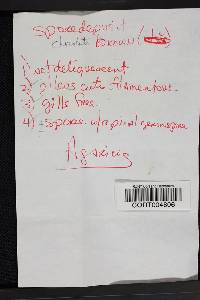 Sporedeposit
chocolate brown
1) not deliquescent
2) pileus cutis filamentous
3) gills free
4) ± spores w/apical germ pore
Agaricus
GORT004806